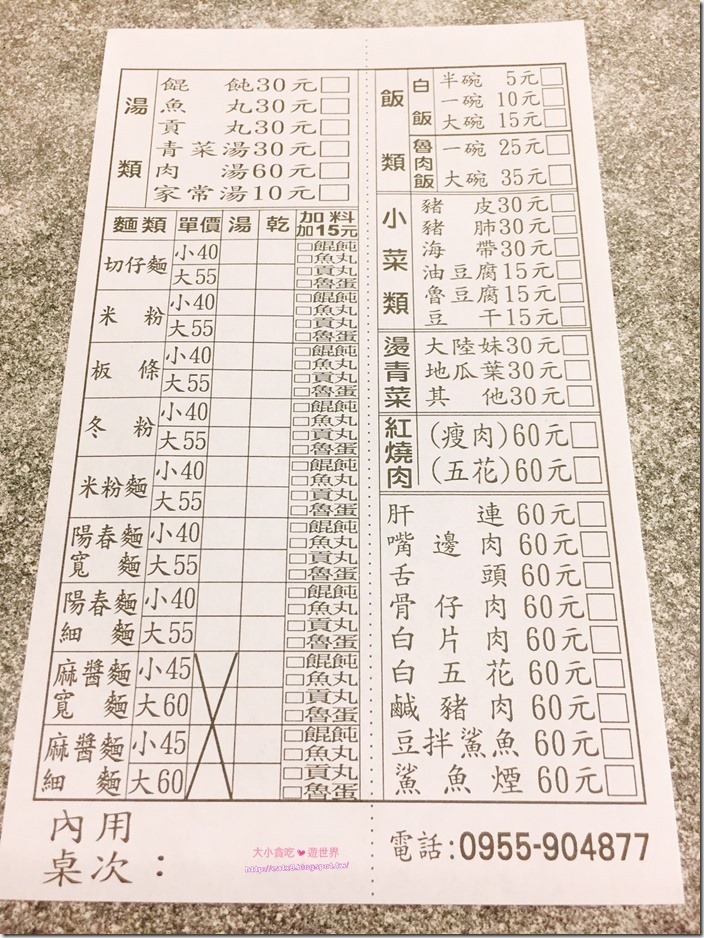 湯類
餛飩30元□
魚丸30元□
貢丸30元□
青菜湯30元□
肉湯60元□
家常湯10元□
麵類 單價 湯 乾 加料加15元
切仔麵 小40 □餛飩 □魚丸
大55 □貢丸 □魯蛋
米粉 小40 □餛飩 □魚丸
大55 □貢丸 □魯蛋
板條 小40 □餛飩 □魚丸
大55 □貢丸 □魯蛋
冬粉 小40 □餛飩 □魚丸
大55 □貢丸 □魯蛋
米粉麵 小40 □餛飩 □魚丸
大55 □貢丸 □魯蛋
陽春麵 小40 □餛飩 □魚丸
寬麵 大55 □貢丸 □魯蛋
陽春麵 小40 □餛飩 □魚丸
細麵 大55 □貢丸 □魯蛋
麻醬麵 小45 □餛飩 □魚丸
寬麵 大60 □貢丸 □魯蛋
麻醬麵 小45 □餛飩 □魚丸
細麵 大60 □貢丸 □魯蛋
內用
桌次：
飯類
白飯
半碗 5元□
一碗 10元□
大碗 15元□
魯肉飯
一碗 25元□
大碗 35元□
小菜類
豬皮30元□
豬肺30元□
海帶30元□
油豆腐15元□
魯豆腐15元□
豆干15元□
燙青菜
大陸妹30元□
地瓜葉30元□
其他30元□
紅燒肉
(瘦肉)60元□
(五花)60元□
肝連 60元□
嘴邊肉 60元□
舌頭 60元□
骨仔肉 60元□
白片肉 60元□
白五花 60元□
鹹豬肉 60元□
豆拌鯊魚 60元□
鯊魚煙 60元□
電話:0955-904877
大小貪吃❤遊世界